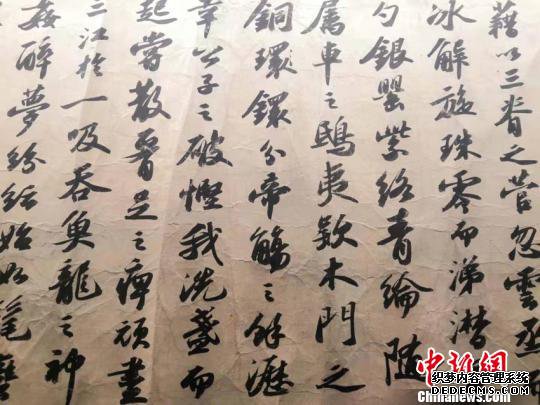 藉以三脊之菅忽雲烝而
冰解旋珠零而涕潸
勺銀罌紫絡青綸隨
属車之鴟夷款木門之
銅環鐶分帝觴之餘瀝
幸公子之破慳我洗盞而
起嘗散腎足之痺頑盡
三江於一吸吞魚龍之神
姦醉夢紛紜始如髦蠻
中新网
织梦内容管理系统